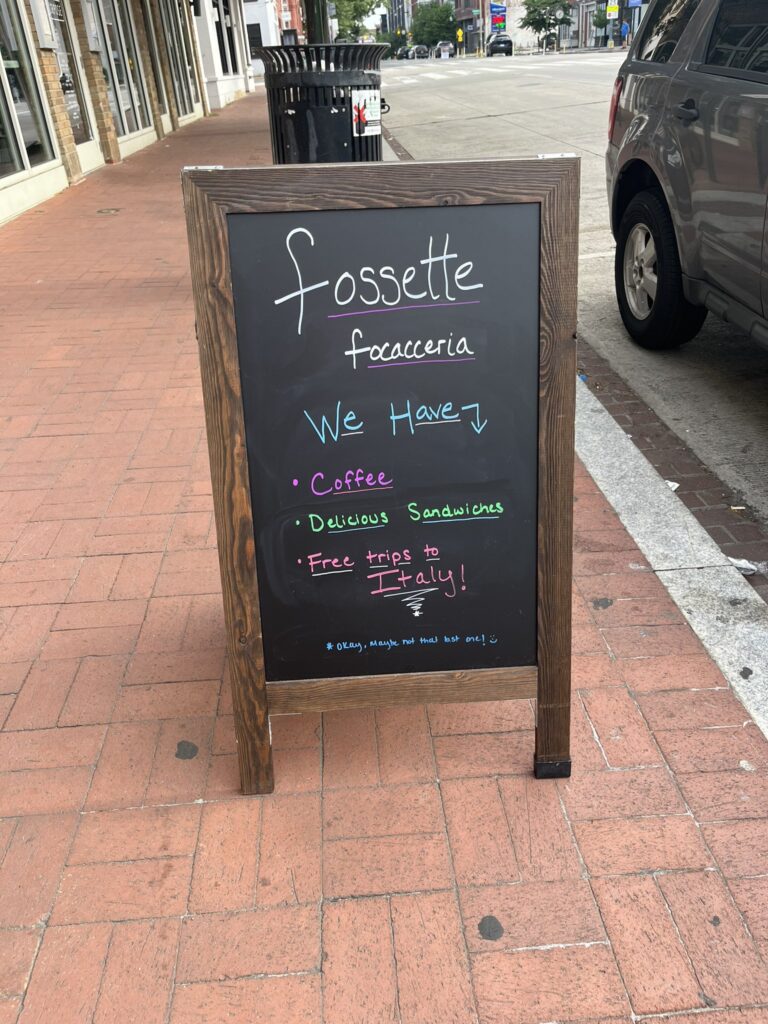 fossette
focacceria
We Have
• Coffee
• Delicious Sandwiches
• Free trips to
Italy!
*
* Okay, Maybe not that last one!